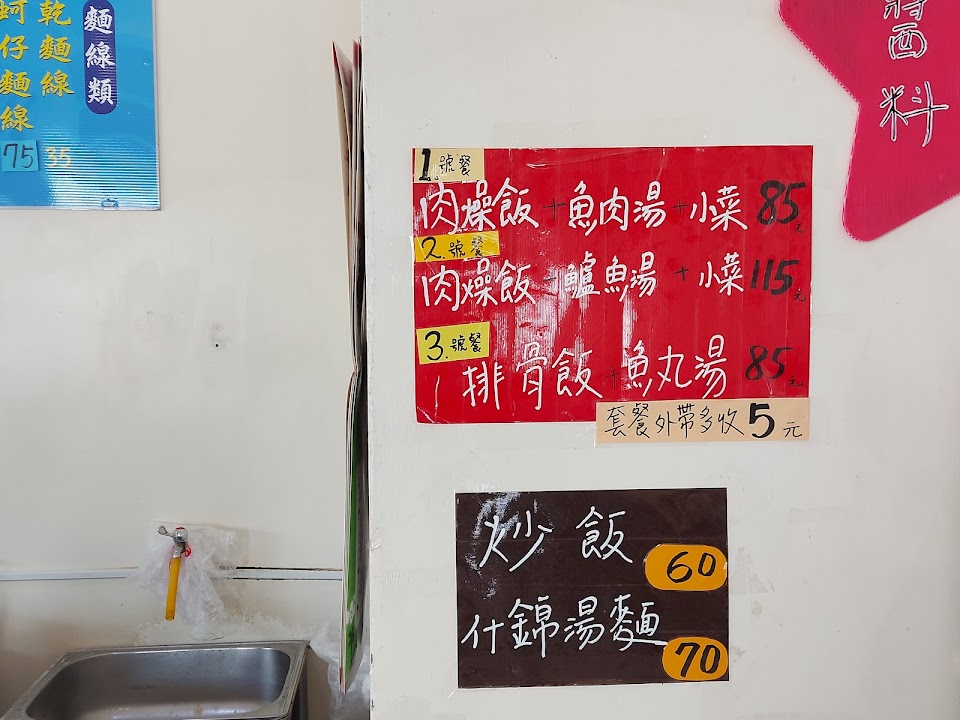 麵線類
乾麵線
蚵仔麵線
75 35
醬料
1.號餐
肉燥飯+魚肉湯+小菜 85元
2.號餐
肉燥飯+鱸魚湯+小菜 115元
3.號餐
排骨飯+魚丸湯 85元
套餐外帶多收5元
炒飯 60
什錦湯麵 70